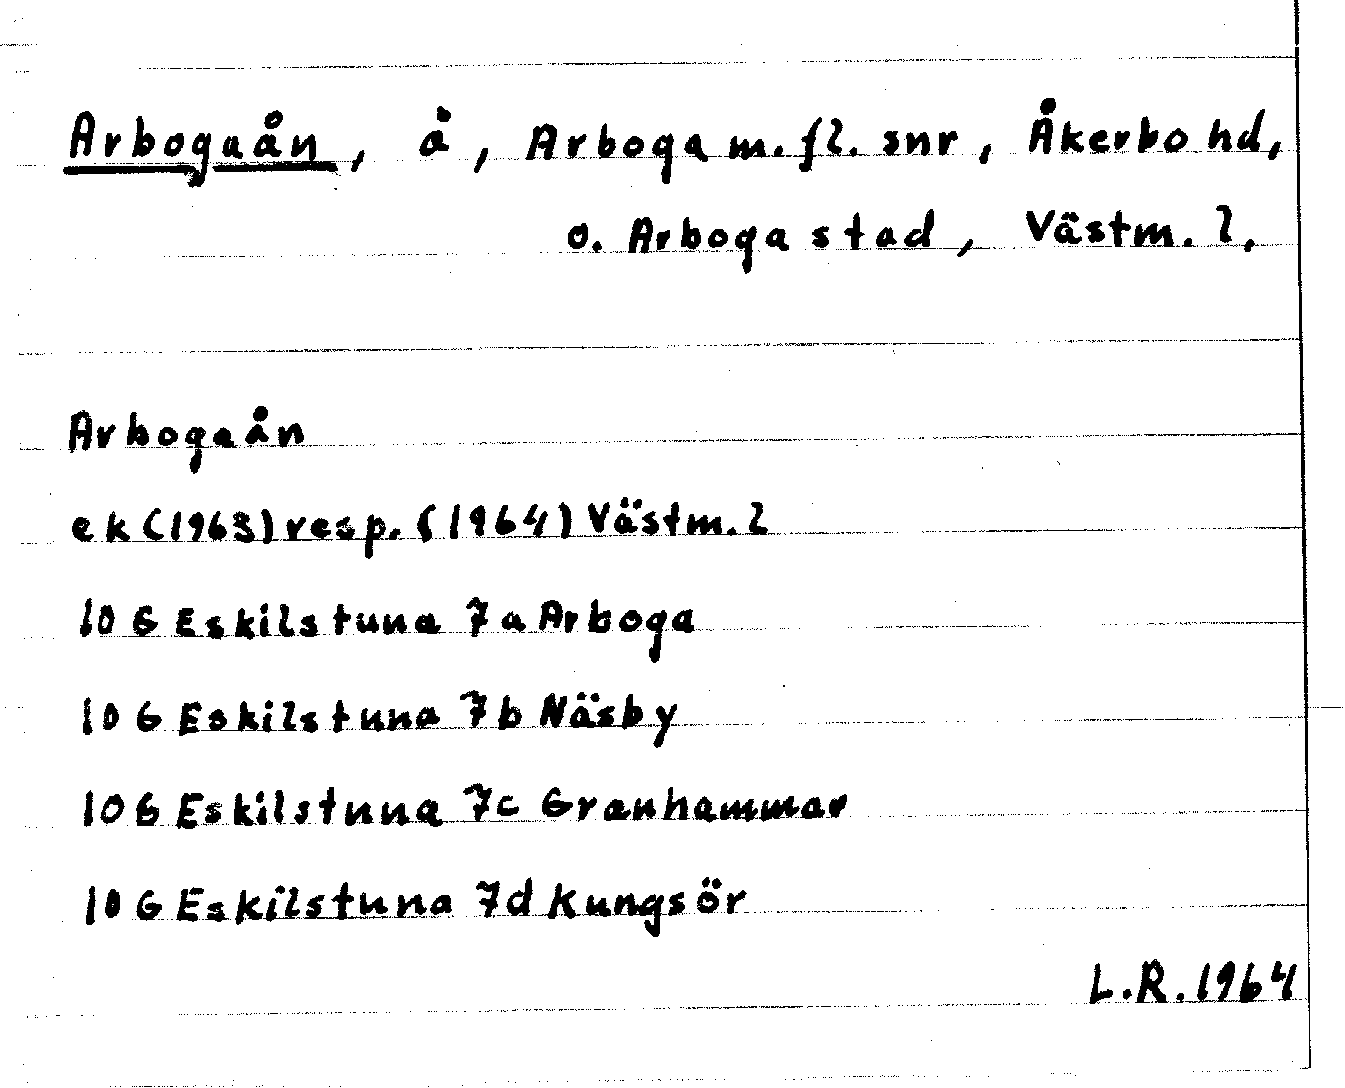 Arbogaån, å, Arboga m.fl. snr, Åkerbo hd,
o. Arboga stad, Västm. l,
Arbogaån
ek (1963) resp. (1964) Västm. l
10 G Eskilstuna 7a Arboga
10 G Eskilstuna 7b Näsby
10 G Eskilstuna 7c Granhammar
10 G Eskilstuna 7d Kungsör
L.R. 1964